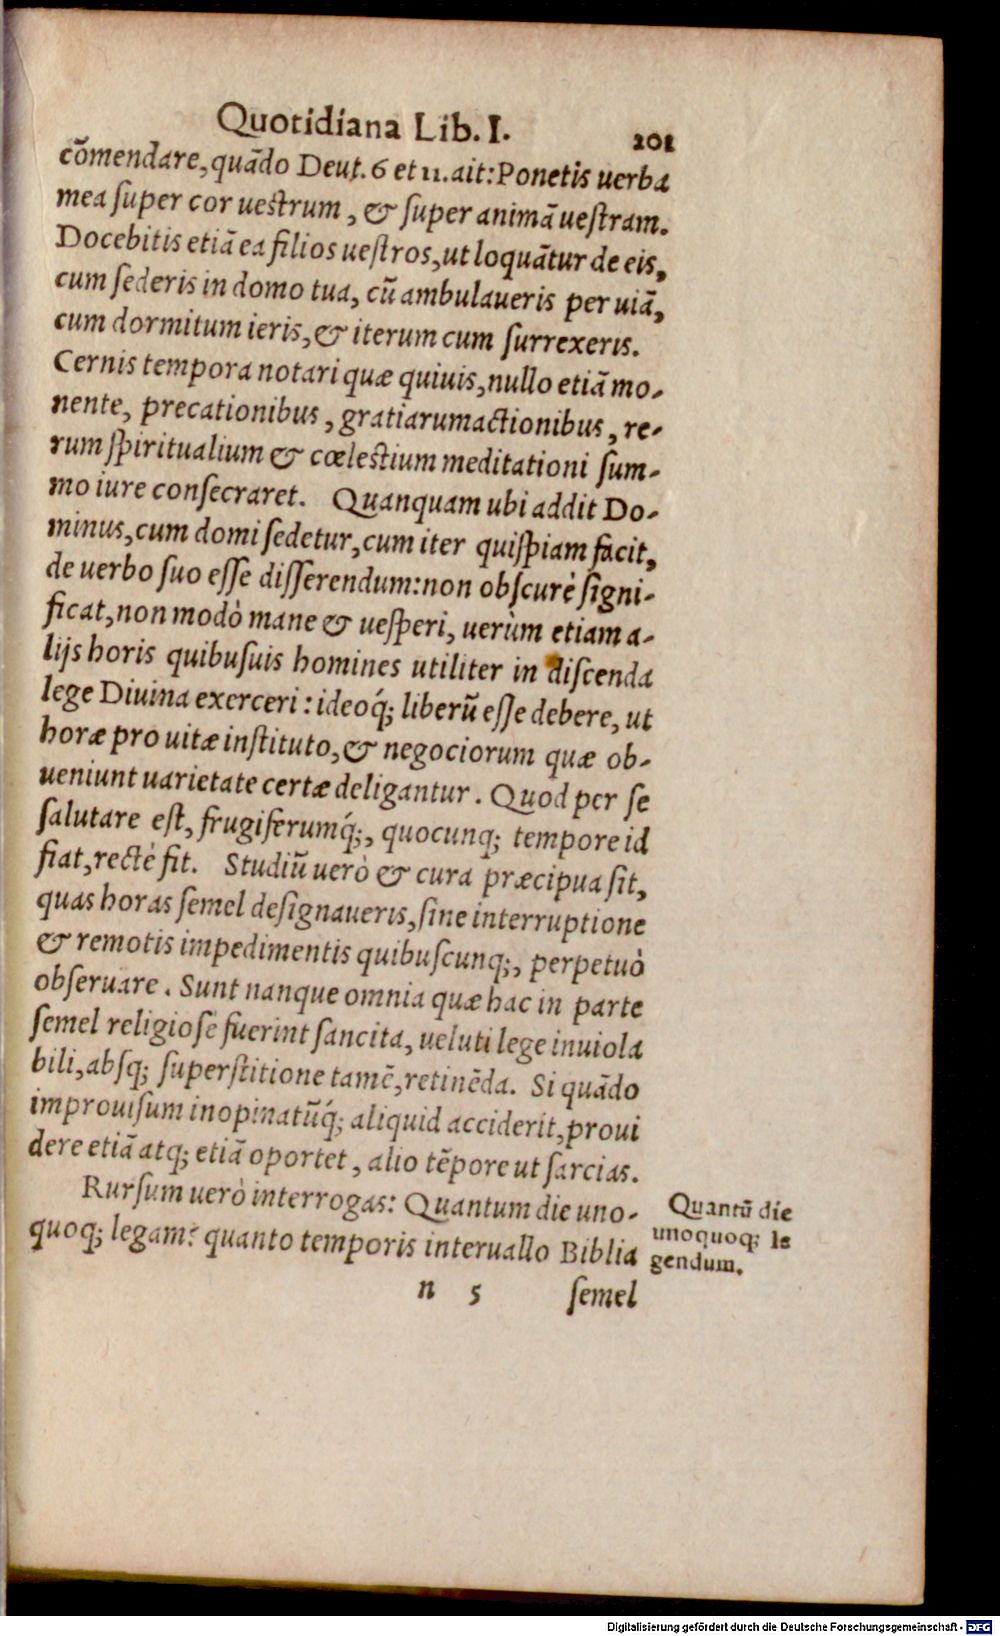 Quotidiana Lib. I. 201
cõmendare, quãdo Deut. 6 et 11. ait: Ponetis uerba
mea ſuper cor ueſtrum, & ſuper animã ueſtram.
Docebitis etiã ea filios ueſtros, ut loquãtur de eis,
cum ſederis in domo tua, cũ ambulaueris per uiã,
cum dormitum ieris, & iterum cum ſurrexeris.
Cernis tempora notari quæ quiuis, nullo etiã mo-
nente, precationibus, gratiarumactionibus, re-
rum ſpiritualium & cœleſtium meditationi ſum-
mo iure conſecraret. Quanquam ubi addit Do-
minus, cum domi ſedetur, cum iter quiſpiam facit,
de uerbo ſuo eſſe diſſerendum: non obſcurè ſigni-
ficat, non modò mane & ueſperi, uerùm etiam a-
lijs horis quibuſuis homines utiliter in diſcenda
lege Diuina exerceri: ideoq́; liberũ eſſe debere, ut
horæ pro uitæ inſtituto, & negociorum quæ ob-
ueniunt uarietate certæ deligantur. Quod per ſe
ſalutare eſt, frugiferumq́;, quocunq; tempore id
fiat, rectè fit. Studiũ uerò & cura præcipua ſit,
quas horas ſemel deſignaueris, ſine interruptione
& remotis impedimentis quibuſcunq;, perpetuò
obſeruare. Sunt nanque omnia quæ hac in parte
ſemel religioſè fuerint ſancita, ueluti lege inuiola
bili, abſq; ſuperſtitione tamẽ, retinẽda. Si quãdo
improuiſum inopinatũq́; aliquid acciderit, proui
dere etiã atq; etiã oportet, alio tẽpore ut ſarcias.
Rurſum uerò interrogas: Quantum die uno-
quoq; legam? quanto temporis interuallo Biblia
Quantũ die
unoquoq; le
gendum.
n 5 ſemel
Digitalisierung gefördert durch die Deutsche Forschungsgemeinschaft - DFG